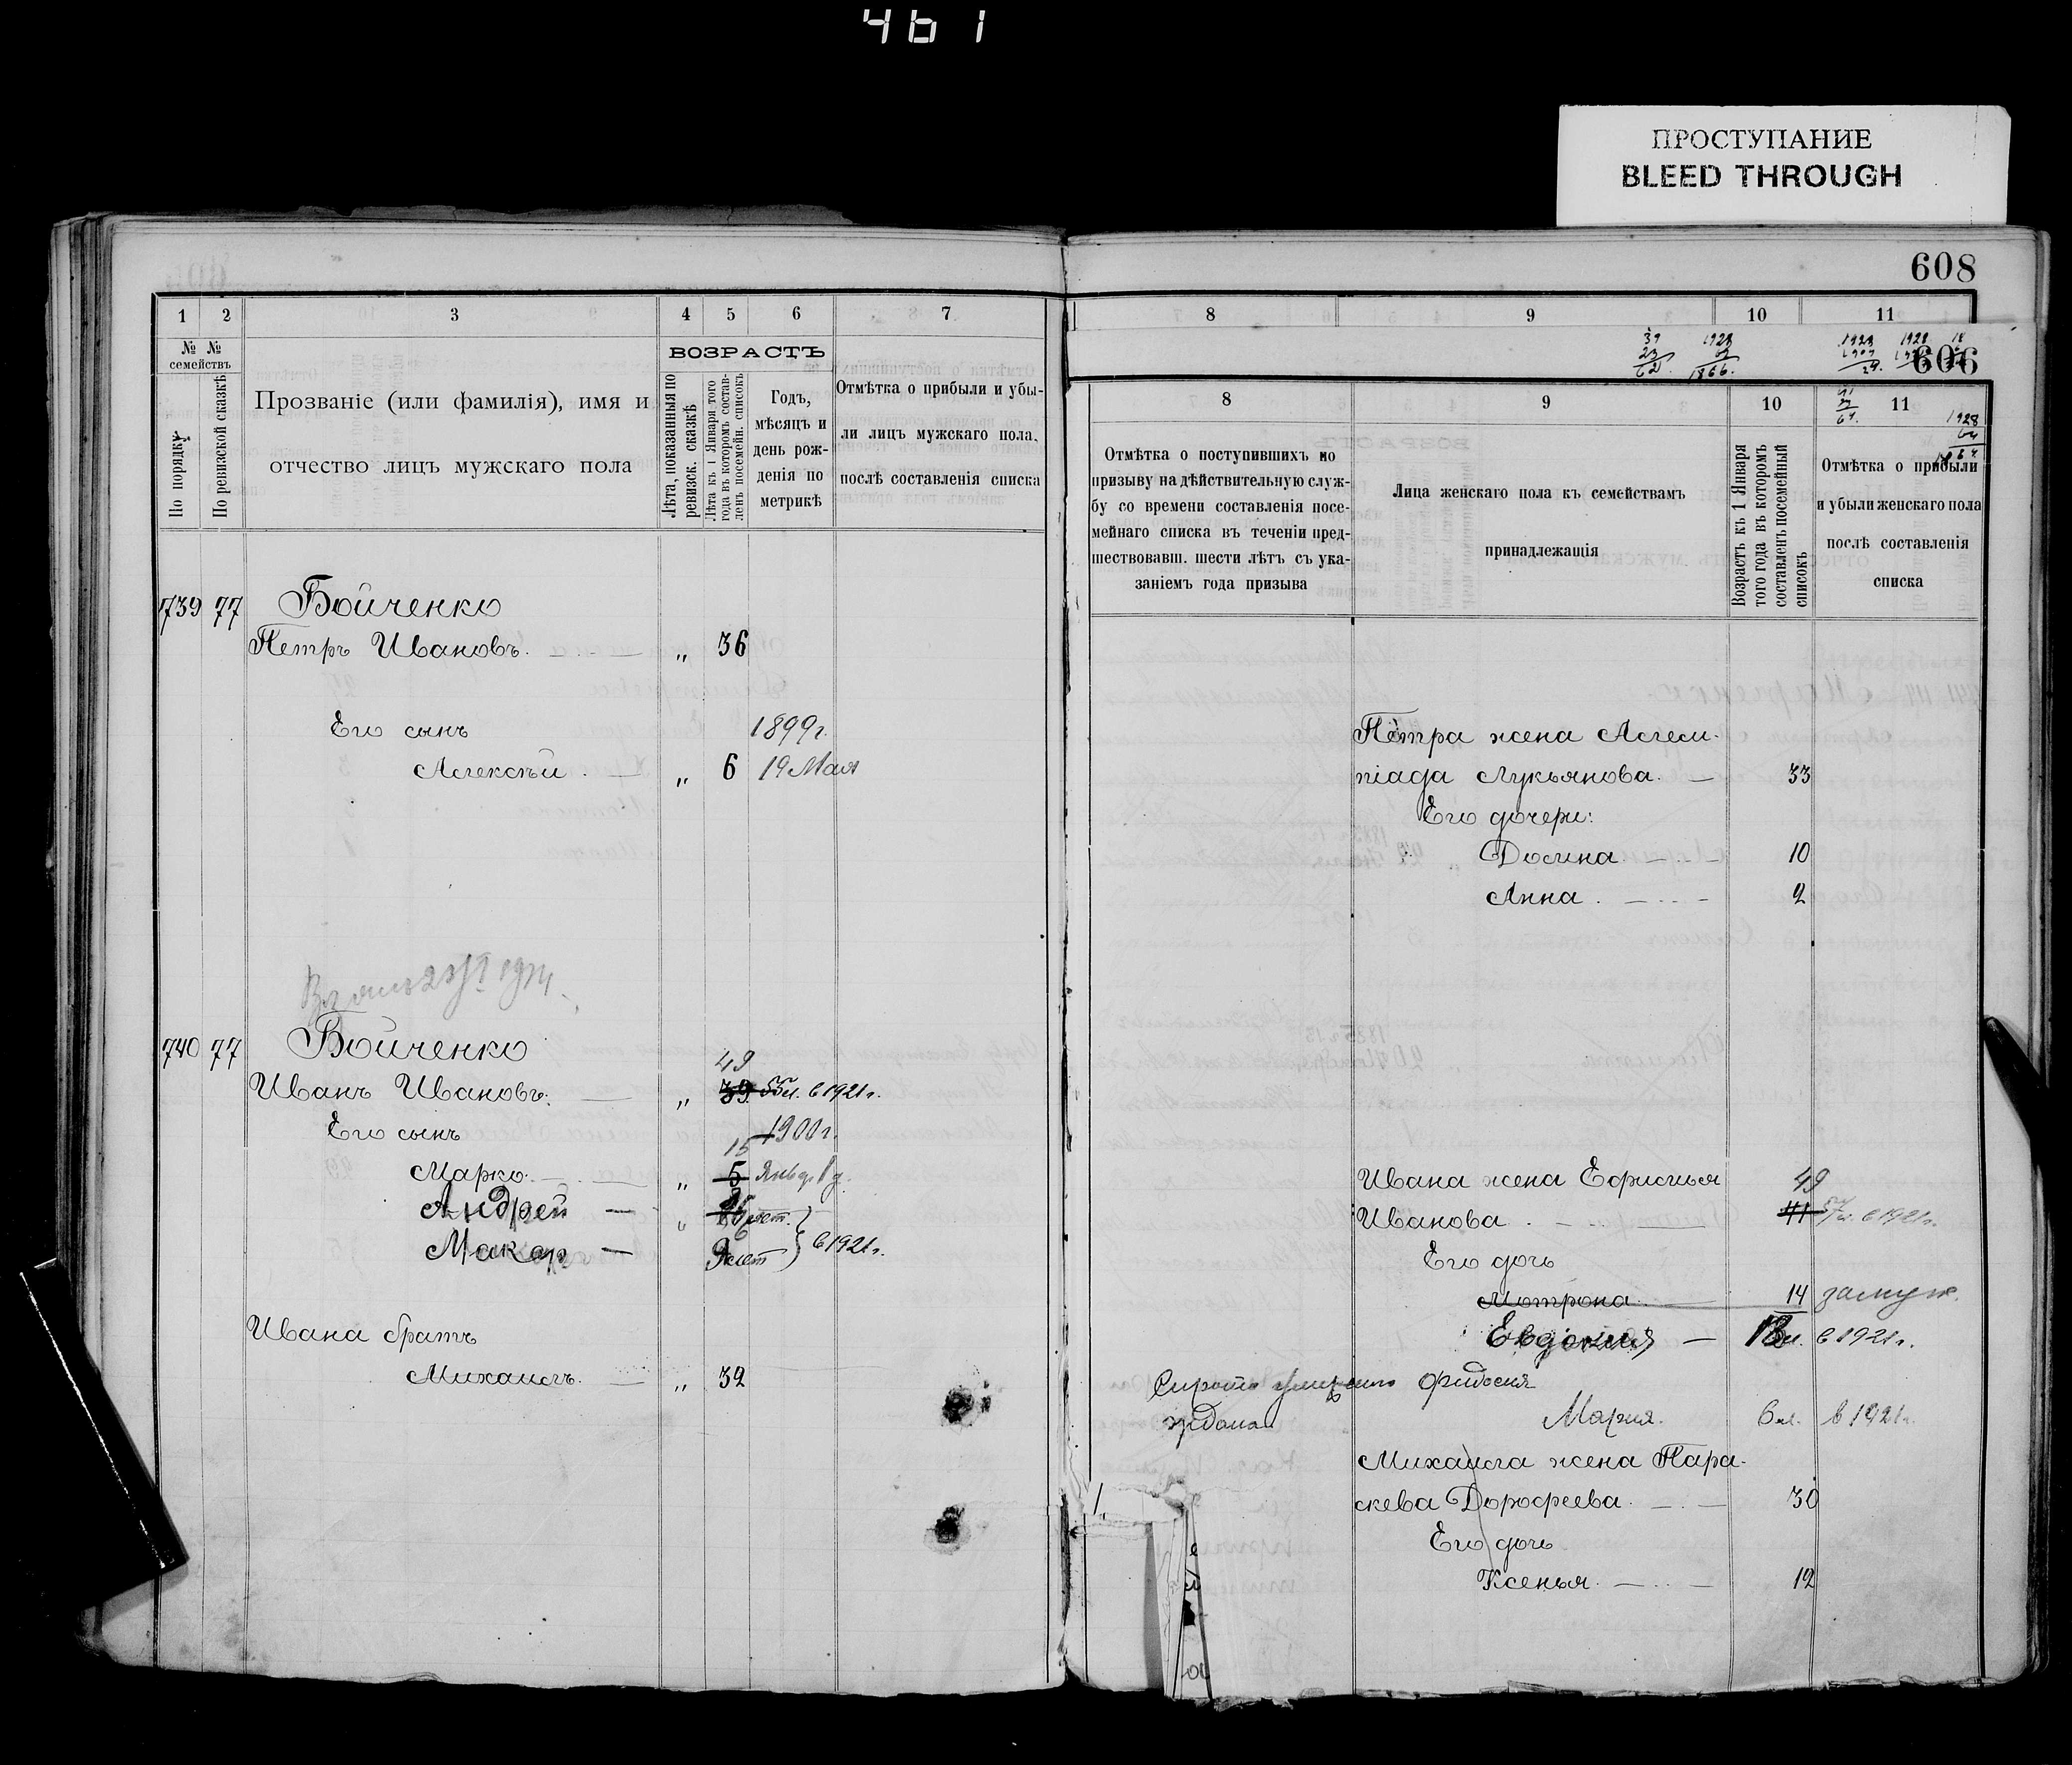 461
ПРОСТУПАНИЕ
BLEED THROUGH
608
1 2 3 4 5 6 7
№ №
семействъ
По порядку
По ревизской сказкѣ
Прозваніе (или фамилія), имя и
отчество лицъ мужскаго пола
ВОЗРАСТЪ
Лѣта, показанныя по
ревизск. сказкѣ
Лѣта къ 1 Января того
года въ которомъ состав-
ленъ посемейн. списокъ
Годъ,
мѣсяцъ и
день рож-
денія по
метрикѣ
Отмѣтка о прибыли и убы-
ли лицъ мужскаго пола,
послѣ составленія списка
739 77 Бойченко
Петръ Ивановъ. „ 36
Его сынъ 1899 г.
Алексѣй „ 6 19 Мая
740 77 Бойченко
49
Иванъ Ивановъ. „ 39 55 л. в 1921 г.
Его сынъ 1900 г.
15
Марко „ 5 Январ
Андрей —
Макар — 9 лет } в 1921 г.
Ивана братъ
Михаилъ. „ 32
8 9 10 11
39 1928 1923 1928
1866.
606
8 9 10 11
1928
64
Отмѣтка о поступившихъ по
призыву на дѣйствительную служ-
бу со времени составленія посе-
мейнаго списка въ теченіи пред-
шествовавш. шести лѣтъ съ ука-
заніемъ года призыва
Лица женскаго пола къ семействамъ
принадлежащія
Возрастъ къ 1 Января
того года въ которомъ
составленъ посемейный
списокъ
Отмѣтка о прибыли
и убыли женскаго пола
послѣ составленія
списка
Петра жена Олим-
піада Лукьянова. 33
Его дочери:
Домна 10
Анна 2
Ивана жена Ефросинья 49
Иванова 41 в 1921 г.
Его дочь
Мотрона 14 замуж.
Евдокия — в 1921 г.
Сирота Фидосия
Мария. 6 л. в 1921 г.
Михаила жена Пара-
скева Дорофеева. 30
Его дочь
Ксенья. 12